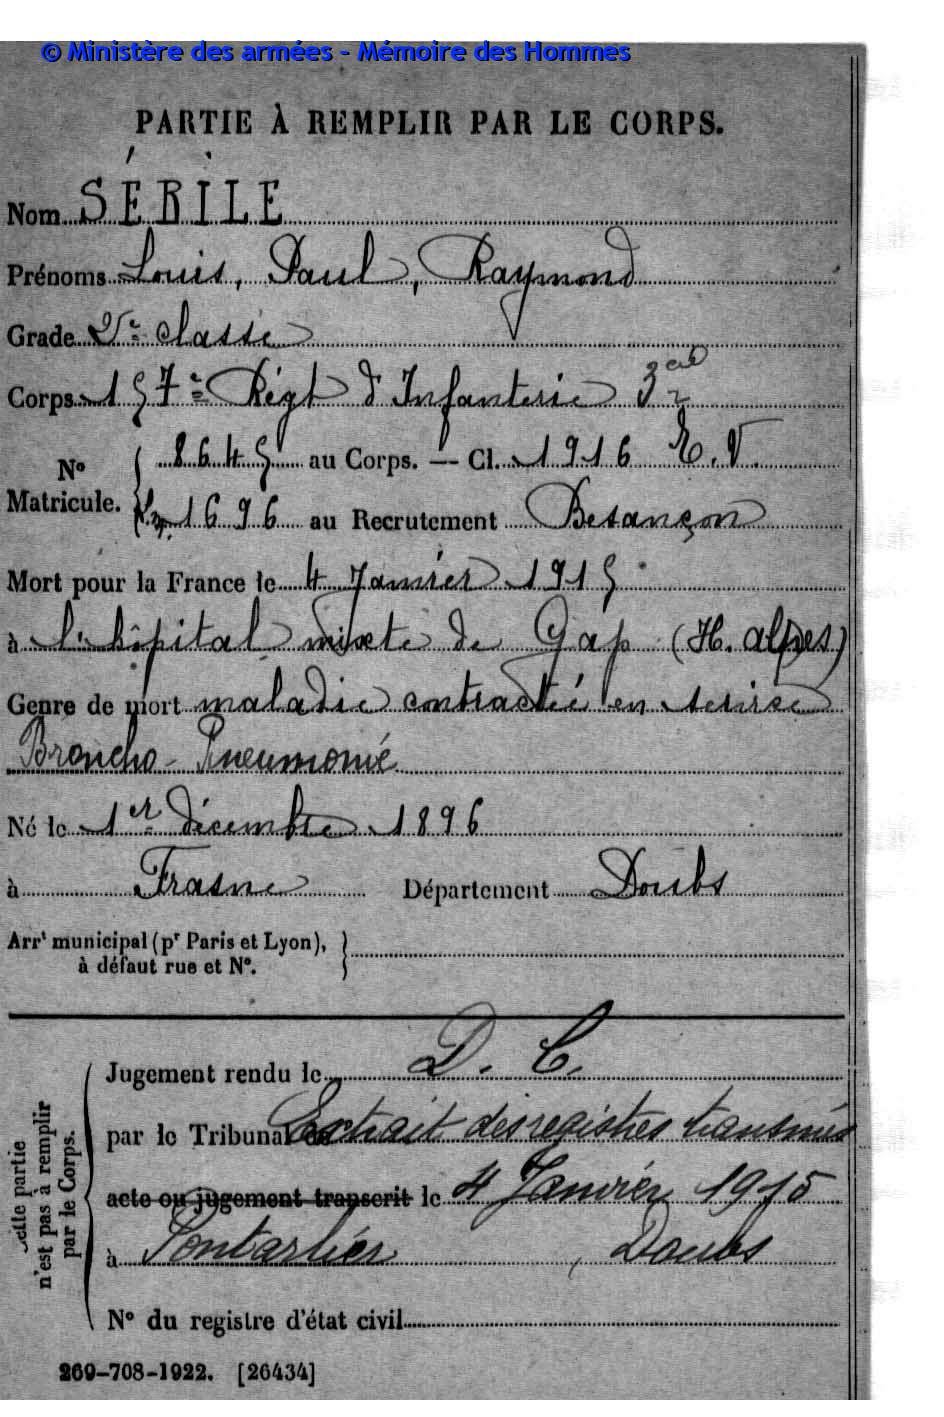 © Ministère des armées - Mémoire des Hommes
PARTIE À REMPLIR PAR LE CORPS.
Nom SÉRILE
Prénoms Louis, Paul, Raymond
Grade 2e classe
Corps 157e Régt d'Infanterie
No Matricule. 8645 au Corps. — Cl. 1916 E.V.
1696 au Recrutement Besançon
Mort pour la France le 4 Janvier 1915
à l'hôpital mixte de Gap (H. Alpes)
Genre de mort maladie contractée en service
Broncho-Pneumonie
Né le 1er décembre 1896
à Frasne Département Doubs
Arrt municipal (pr Paris et Lyon),
à défaut rue et No.
Cette partie n'est pas à remplir par le Corps.
Jugement rendu le D. C.
par le Tribunal Extrait des registres transmis
acte ou jugement transcrit le 4 Janvier 1915
à Pontarlier, Doubs
No du registre d'état civil
269-708-1922. [26434]